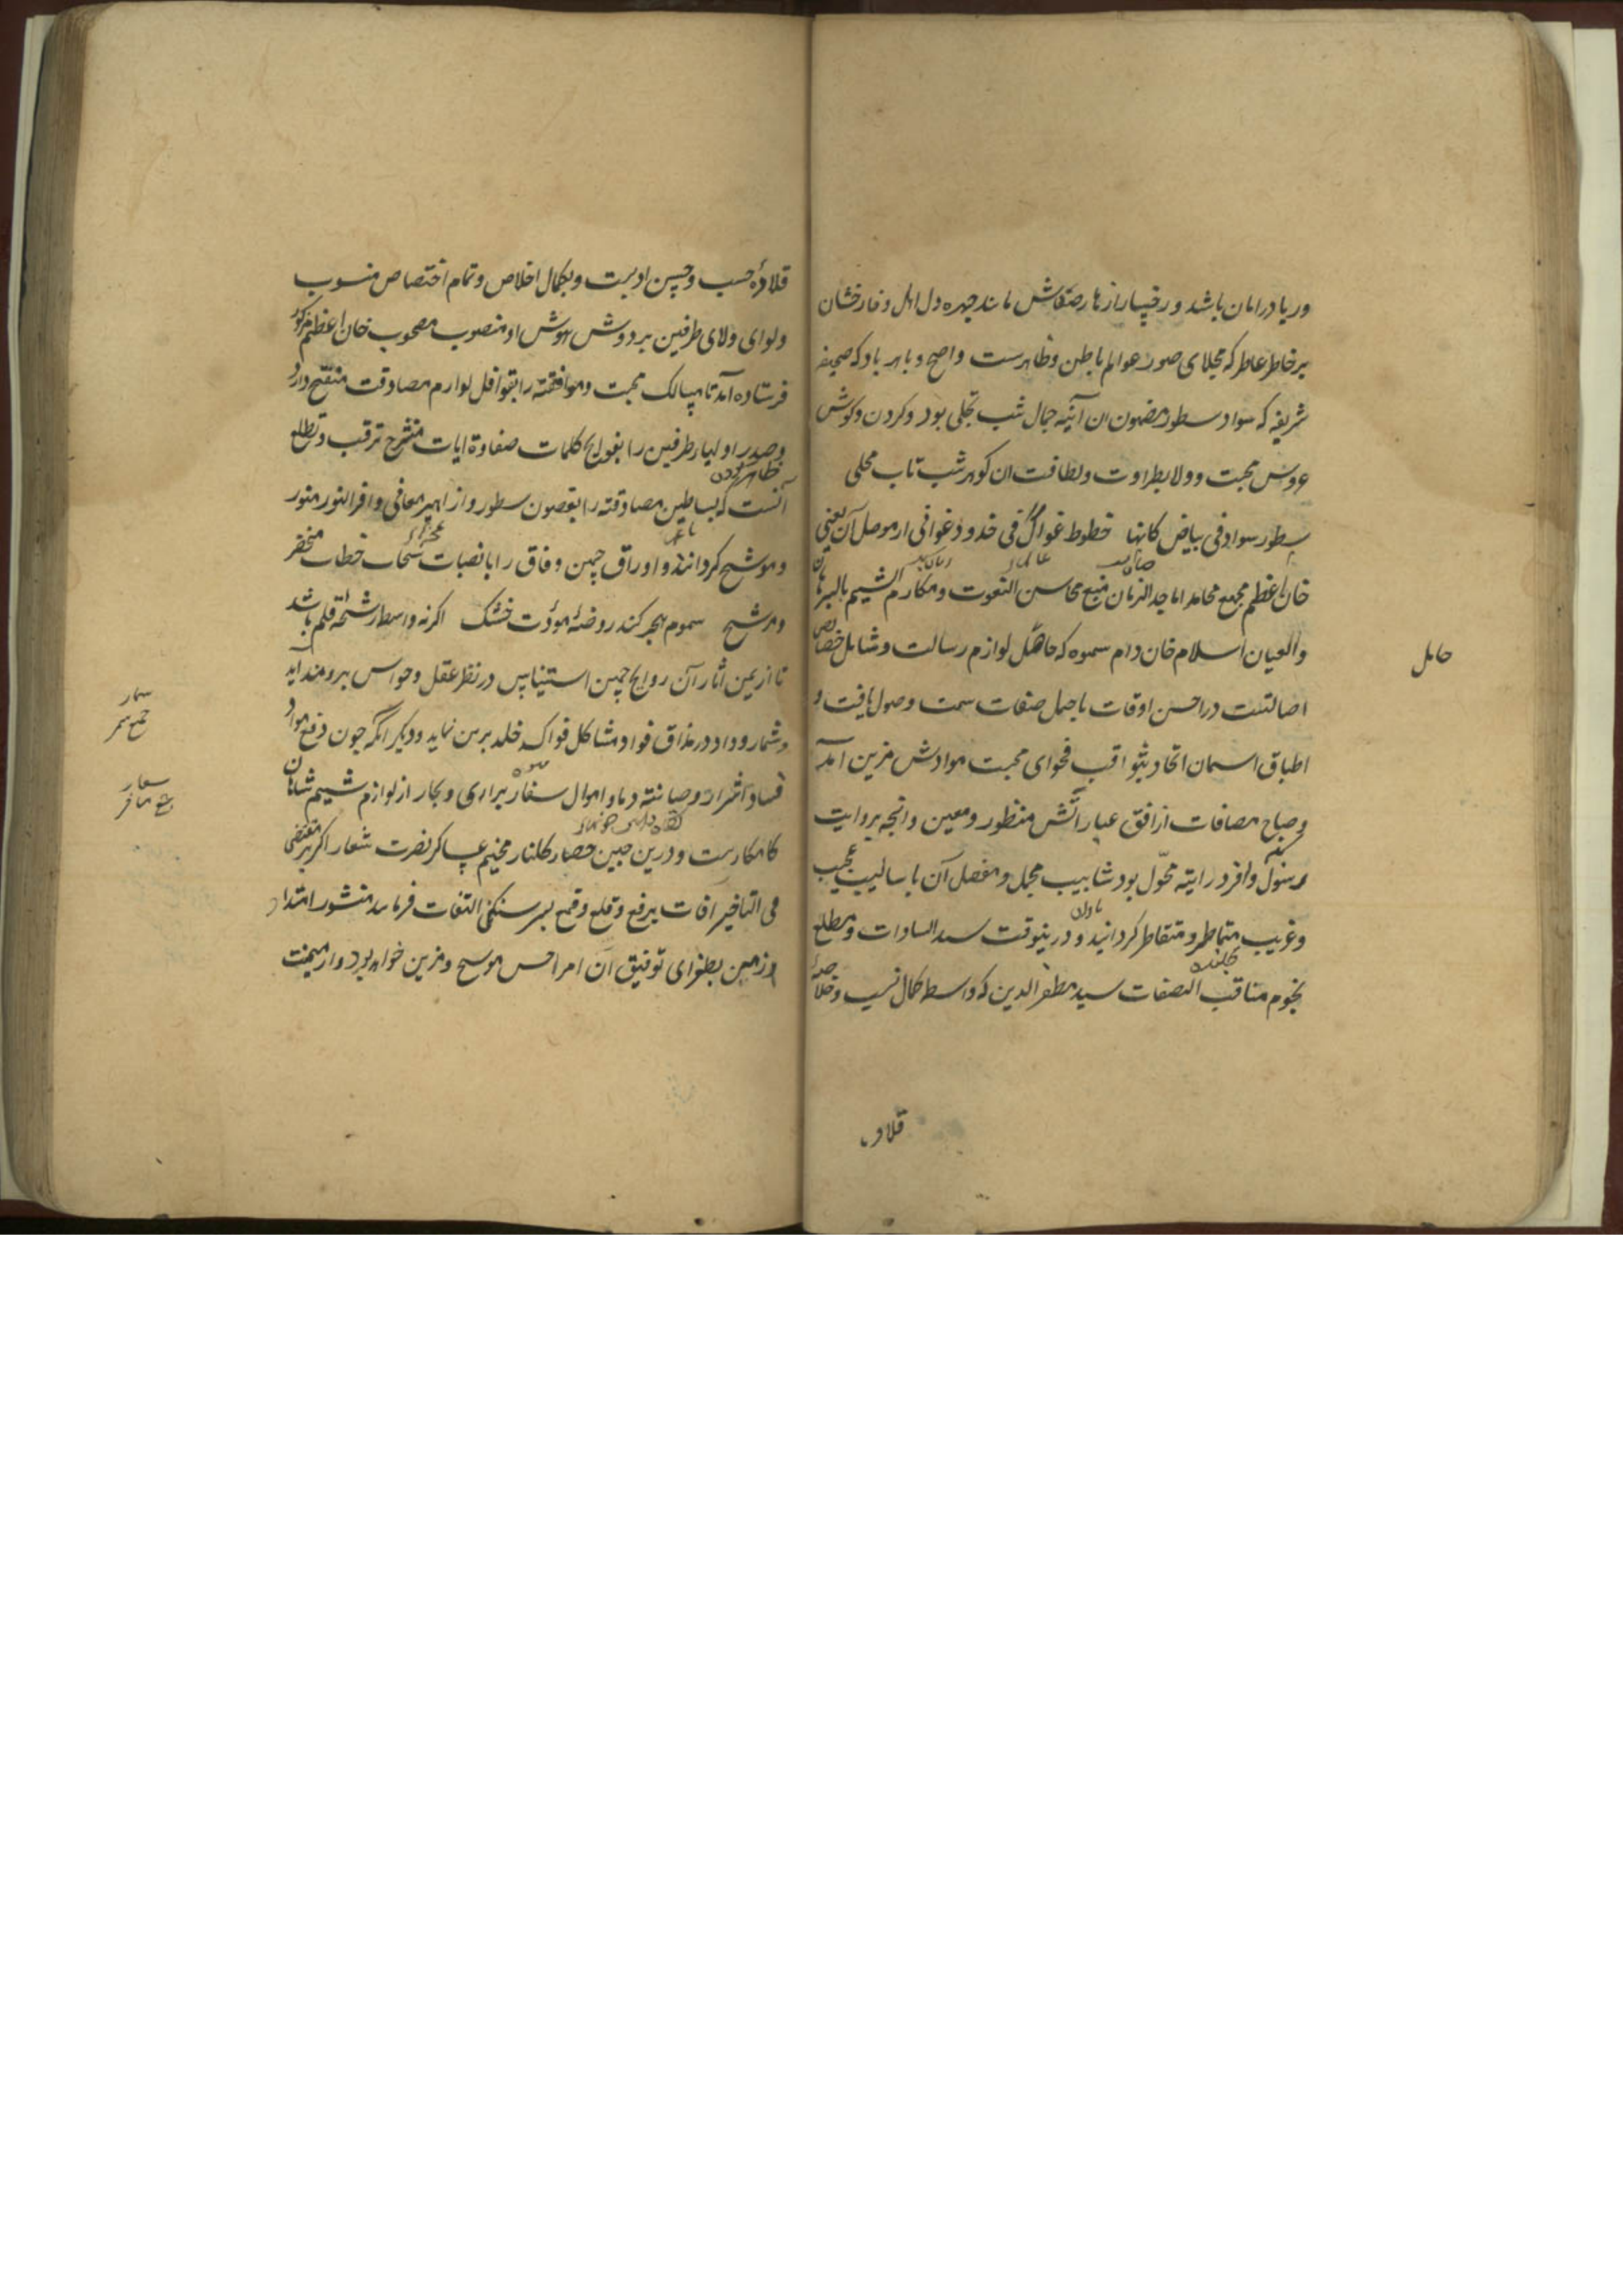 وریا در امان باشد و رخسار ازهار صدقاش مانند چهره دل اهل وفا رخشان
بر خاطر عاطر که مجلای صور عوالم باطن و ظاهرست واضح و باهر باد که صحیفه
شریفه که سواد سطور مضمون ان آئینه جمال شب تجلی بود و کردن و کوش
عروس محبت و ولا بطراوت و لطافت ان کوهر شب تاب محلی
سطور سواد فی بیاض کانها خطوط غوال فی خدود غوانی از موصل آن یعنی
خان اعظم مجمع محامد اماجد الزمان منبع محاسن النعوت و مکارم الشیم بالبرهان
والعیان اسلام خان دام سموه که حامل لوازم رسالت و شامل خصایص
حامل
اصالتست در احسن اوقات باجمل صفات سمت وصول یافت و
اطباق اسمان اتحاد بثواقب فحوای محبت موادش مزین آمد
و صباح مصافات از افق عباراتش منظور و معین و انچه بروایت
رسول وافر درایته محول بود شابیب مجمل و مفصل آن باسالیب عجیب
باران
وغریب متماطر و متقاطر کردانید و درینوقت سید السادات و مطلع
چکاننده
نجوم مناقب الصفات سید مظفر الدین که واسطه کمال نسب و خلاصهٔ
قلاده
قلادهٔ حسب و حسن ادبرت و بکمال اخلاص و تمام اختصاص منسوب
و لوای ولای طرفین بر دوش هوش او منصوب مصحوب خان اعظم مذکور
فرستاده آمد تا مسالک محبت و موافقة را بقوافل لوازم مصادقت منفتح دارد
و صدر اولیاء طرفین را بفوایح کلمات صفاوة ایات منشرح ترقب و تطلع
ظاهر بودن
آنست که بساطین مصادقته را بغصون سطور و ازاهیر معانی وافر النور منور
و موشح کردانند و اوراق چمن وفاق را بانصبات سحاب خطاب مخضر
و مرشح سموم هجر کند روضهٔ مودت خشک اکرنه واسطه رشحهٔ قلم باشد
تا از یمن اثار آن روایح چمن استیناس در نظر عقل و حواس برومند آید
سمار
جمع سمر
و شمار وداد در مذاق فواد مشاکل فواکه خلد برین نماید و دیکر انکه چون دفع مواد
میوه
فساد اشرار و صیانته دماء و اموال سفار براری و بحار از لوازم شیم شاهان
سفار
جمع سافر
کامکارست و درین حین حصار کلنار مخیم عساکر نصرت شعار اکر بر مقتضی
فی التاخیر آفات برفع و قلع و قمع بسر سنکفی التفات فرمایند منشور امتداد
ازمین بطغرای توفیق آن امر احسن موسح و مزین خواهد بود و از میمنت